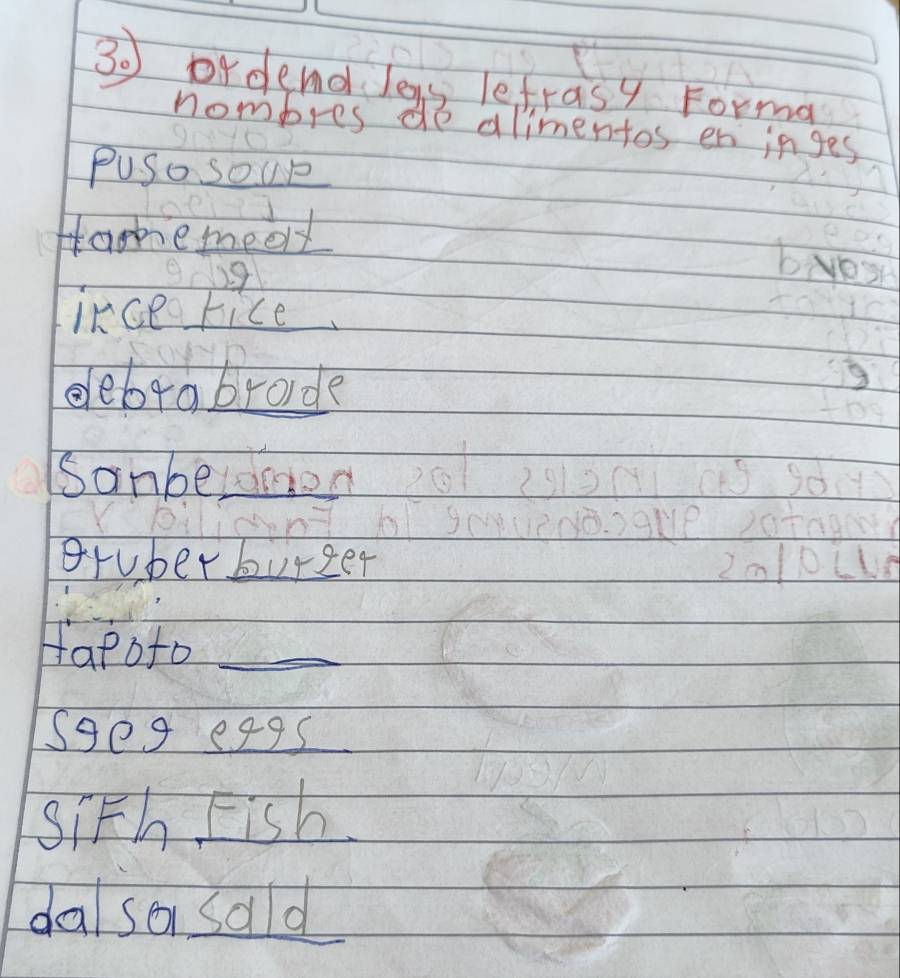 3.) ordend legs letras y Forma
nombres de alimentos en inges
puso soup
tame meat
irce rice
debra brade
Sanbe
gruber burger
tapoto
sgeg eggs
siFh Fish
dalsa sald